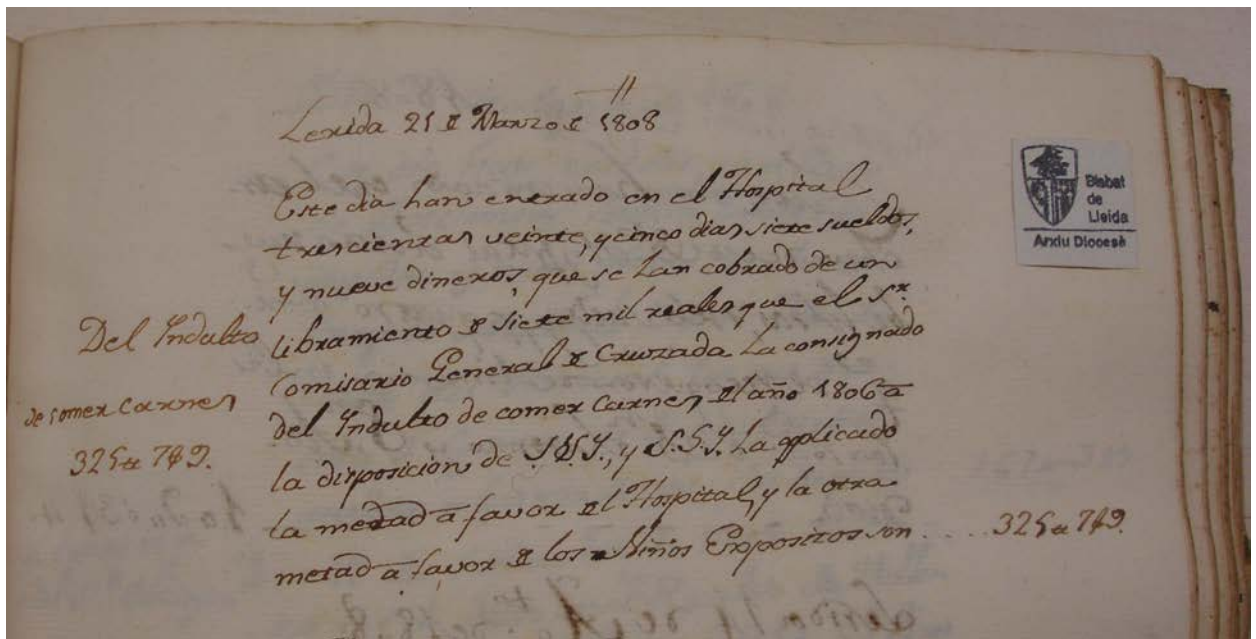 Lerida 21 de Marzo de 1808
Este dia han entrado en el Hospital
trescientas veinte, y cinco dias siete sueldos,
y nueve dineros, que se han cobrado de un
libramiento de siete mil reales que el Sr.
Comisario General de Cruzada ha consignado
del Indulto de comer Carnes del año 1806 à
la disposicion de S.S.Y., y S.S.Y. ha applicado
la metad à favor del Hospital, y la otra
metad à favor de los Niños Expositos son ..... 325 tt 7 $ 9.
Del Indulto
de comer Carnes
325 tt 7 $ 9.
Bisbat
de
Lleida
Arxiu Diocesà